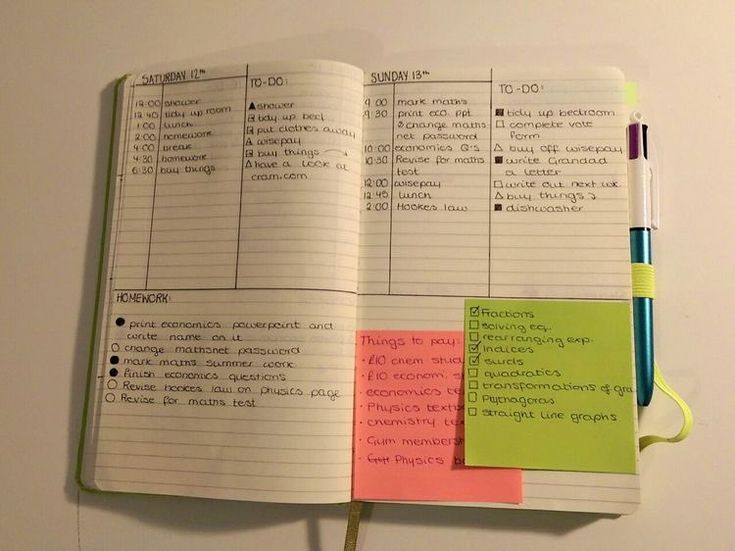 SATURDAY 12TH
12:00 shower
12:40 tidy up room
1:00 lunch
2:00 homework
4:00 break
4:30 homework
6:30 buy things
TO-DO:
shower
tidy up bed
put clothes away
wisepay
buy things
have a look at
cram.com
HOMEWORK:
print economics powerpoint and
write name on it
change mathsnet password
mark maths summer work
finish economics questions
Revise hookes law on physics page
Revise for maths test
SUNDAY 13TH
9:00 mark maths
9:30 print eco. ppt.
& change maths
net password
10:00 economics Q's
10:30 Revise for maths
test
12:00 wisepay
12:45 lunch
2:00 Hookes law
TO-DO:
tidy up bedroom
complete vote
form
buy off wisepay
write Grandad
a letter
write out next wk.
buy things
dishwasher
Things to pay:
• £10 chem stud
• £10 econom. s
• economics te
• Physics textu
• chemistry te
• Gum members
• Physics b
Fractions
solving eq.
rearranging exp.
Indices
surds
quadratics
transformations of gra
Pythagoras
straight line graphs